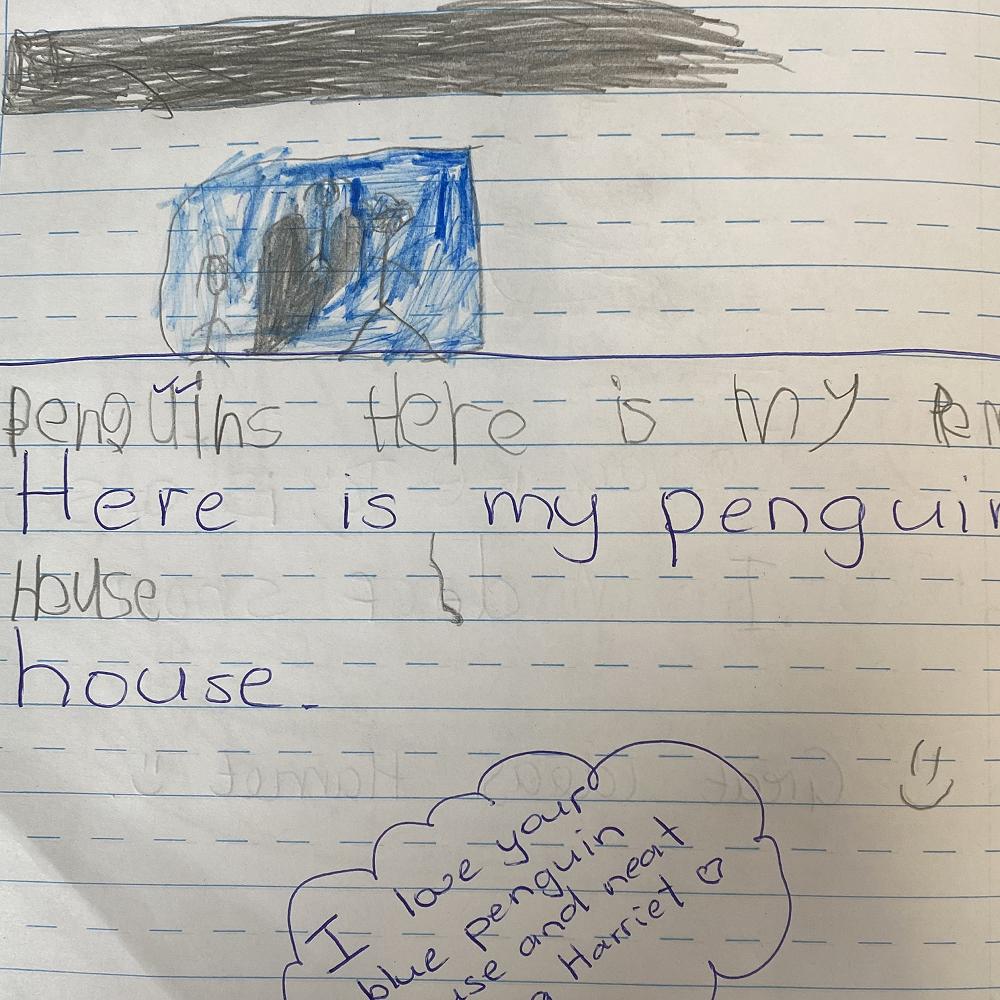 penguins Here is my Pen
Here is my penguin
House
house.
I love your
blue penguin
use and neat
Harriet